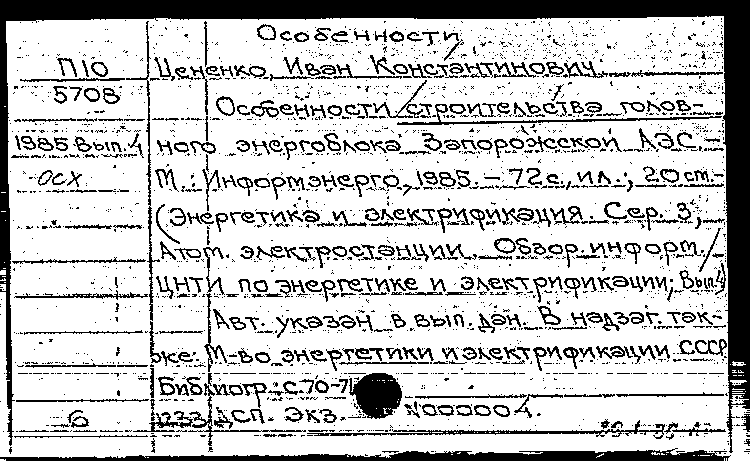 Особенности
П10 Цененко, Иван Константинович.
5708
Особенности строительства голов-
1985 Вып.4 ного энергоблока Запорожской АЭС.-
осх М.: Информэнерго, 1985.- 72 с., ил.; 20 ст.-
(Энергетика и электрификация. Сер. 3,
Атом. электростанции. Обзор. информ. /
ЦНТИ по энергетике и электрификации; Вып.4)
Авт. указан в вып. дан. В надзаг. так-
же: М-во энергетики и электрификации СССР
Библиогр.: с.70-71
6 1233 ДСП. Экз. N000004.